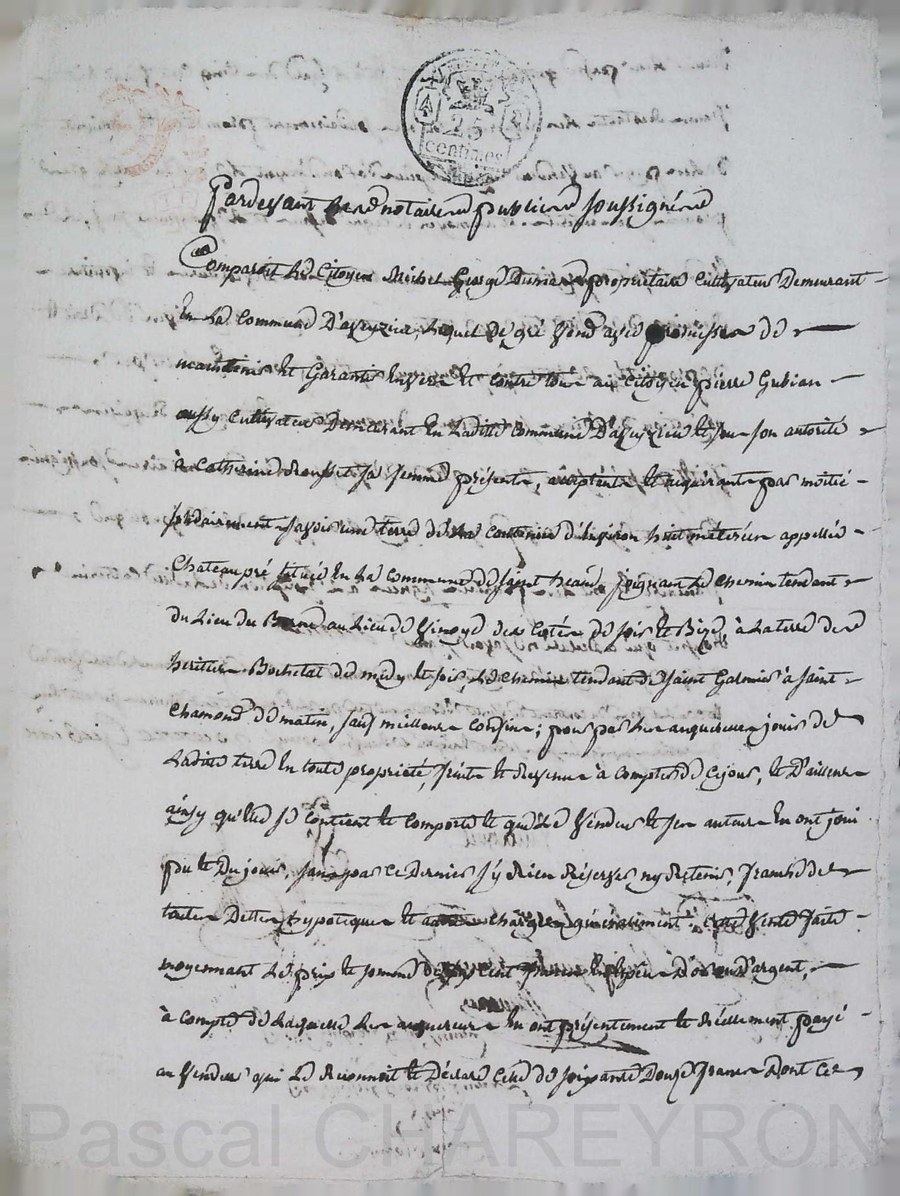 25
centimes
Pardevant les notaires publics soussignés
Comparoit le Citoyen Michel George propriétaire Cultivateur Demeurant
En la Commune D'aveyzieu, lequel de gré vend avec promisse de
maintenir et Garantir Envers et contre tous au Citoyen pierre Gubian
aussy Cultivateur Demeurant En Laditte Commune D'aveyzieu et sous son autorité
à Catherine sa femme présente, acceptante et aquirante par moitié
solidairement savoir une terre de la contenue d'Environ huit métérées appellée
Chateaupré située En la Commune de Saint heand, joignant le chemin tendant
du Lieu du au Lieu de des Cotés de soir et Bize, à la terre des
heritiers Bochetat de midy et soir, le chemin tendant de Saint Galmier à Saint
Chamond de matin, sauf meilleurs Confins; pour par les aquereurs jouir de
Ladite terre En toute propriété, fruits et Revenus à Compter de Cejour, et D'ailleurs
ainsy qu'elle se Contient et Comporte et que le Vendeur et ses auteurs En ont joui
pu et Du jouir, sans par ce Dernier s'y Rien Réserver ny Retenir, franche de
toutes Dettes hypoteques et charges généralement, cette Vente faite
moyennant le prix et somme de cent francs En Espèces D'or ou D'argent,
à Compte de laquelle les aquereurs En ont présentement et Réellement payé
au Vendeur qui le Reconnoit et Déclare Celle de soixante Douze francs Dont Ces
Pascal CHAREYRON